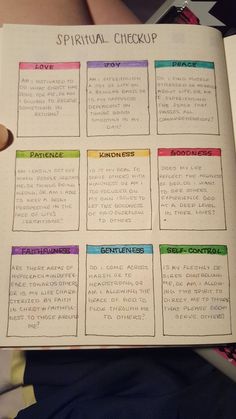 SPIRITUAL CHECKUP
LOVE
AM I MOTIVATED TO
DO WHAT CHRIST HAS
DONE FOR ME, OR AM
I DOING TO RECEIVE
SOMETHING IN
RETURN?
JOY
AM I EXPERIENCING
A JOY OF LIFE ON
A REGULAR BASIS OR
IS MY HAPPINESS
DEPENDENT ON
THINGS GOING
SMOOTHLY IN MY
DAY?
PEACE
DO I FIND MYSELF
OR WORRIED
ABOUT LIFE OR AM
I EXPERIENCING
THE PEACE THAT
PASSES ALL
COMPREHENSION?
PATIENCE
AM I EASILY SET OFF
WHEN PEOPLE IRRITATE
ME OR THINGS GOING
WRONG, OR AM I ABLE
TO KEEP A GODLY
PERSPECTIVE IN THE
FACE OF LIFE'S
IRRITATIONS?
KINDNESS
IS IT MY GOAL TO
SERVE OTHERS WITH
KINDNESS OR AM I
TOO FOCUSED ON
MY OWN ISSUES TO
LET THE GOODNESS
OF GOD OVERFLOW
TO OTHERS?
GOODNESS
DOES MY LIFE
REFLECT THE HOLINESS
OF GOD, DO I WANT
TO SEE OTHERS
EXPERIENCE GOD
AT A DEEP LEVEL
IN THEIR LIVES?
FAITHFULNESS
ARE THERE AREAS OF
HYPOCRACY, INDIFFER-
ENCE TOWARDS OTHERS,
OR IS MY LIFE CHARAC-
TERIZED BY FAITH
IN CHRIST & FAITHFUL-
NESS TO THOSE AROUND
ME?
GENTLENESS
DO I COME ACROSS
HARSH OR TO
HEADSTRONG, OR
AM I ALLOWING THE
GRACE OF GOD TO
FLOW THROUGH ME
TO OTHERS?
SELF-CONTROL
IS MY FLESHLY DE-
SIRES CONTROLING
ME, OR AM I ALLOW-
ING THE SPIRIT TO
DIRECT ME TO THINGS
THAT PLEASE GOD &
SERVE OTHERS?